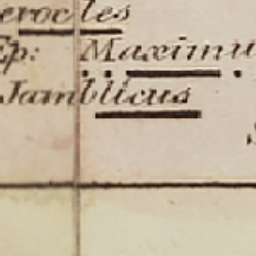 erocles
Ep: Maximu
Jamblicus